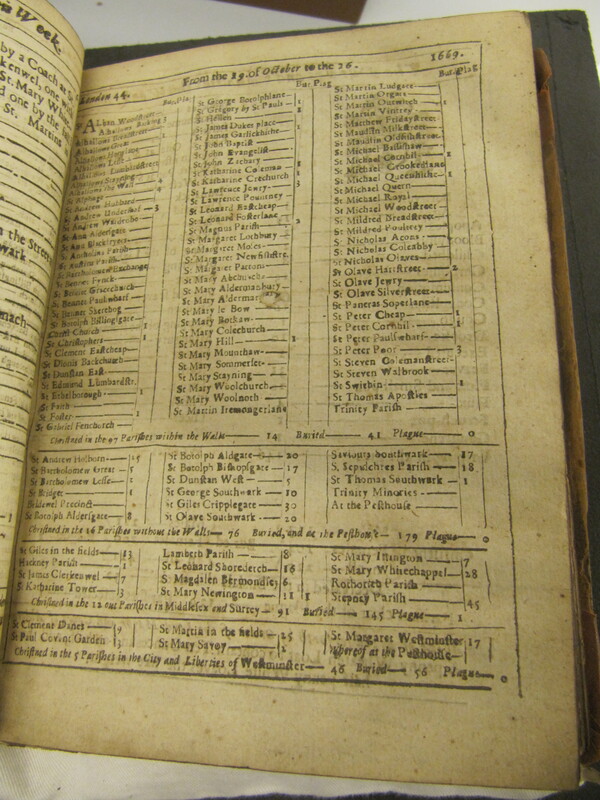 is Week.
by a Coach at St
kenwel, one
St. Mary W
d one by the
St. Martins
the Streets
wark
mach-
London 44. From the 19. of October to the 26. 1669.
Bur. Plag
St George Botolphlane
St Gregory by St Pauls 2
St Hellen
St James Dukes place 1
St James Garlickhithe
St John Baptist
St John Evangelist
St John Zachary
St Katharine Coleman 2
St Katharine Crechurch 1
St Lawrence Jewry 3
St Lawrence Pountney
St Leonard Eastcheap
St Leonard Fosterlane 2
St Magnus Parish
St Margaret Lothbury
St Margaret Moses
St Margaret Newfishstre.
St Margaret Pattons
St Mary Abchurch
St Mary Aldermanbury
St Mary Aldermary
St Mary le Bow
St Mary Bothaw
St Mary Colechurch
St Mary Hill 1
St Mary Mounthaw
St Mary Sommerset
St Mary Stayning
St Mary Woolchurch
St Mary Woolnoth
St Martin Iremongerlane
Bur. Plag
St Martin Ludgate
St Martin Orgars
St Martin Outwitch 1
St Martin Vintrey
St Matthew Fridaystreet
St Maudlin Milkstreet
St Maudlin Oldfishstreet
St Michael Bassishaw
St Michael Cornhil 1
St Michael Crookedlane
St Michael Queenhithe 1
St Michael Quern
St Michael Royal
St Michael Woodstreet
St Mildred Breadstreet
St Mildred Poultry
St Nicholas Acons
St Nicholas Coleabby
St Nicholas Olaves
St Olave Hartstreet 2
St Olave Jewry
St Olave Silverstreet
St Pancras Soperlane
St Peter Cheap 1
St Peter Cornhil 1
St Peter Paulswharf
St Peter Poor 3
St Steven Colemanstreet
St Steven Walbrook
St Swithin 1
St Thomas Apostles
Trinity Parish
St Alban Woodstreet
Alhallows Barking 3
Alhallows Breadstreet
Alhallows the Wall 4
St Alphage
St Andrew Hubbard
St Andrew Undershaf 3
St Andrew Wardrobe
St Ann Aldersgate
St Ann Blackfryers
St Antholins Parish
St Austins Parish
St Bartholomew Exchange
St Bennet Fynck
St Bennet Gracechurch
St Bennet Paulswharf
St Bennet Sherehog
St Botolph Billingsgate
Christ Church 1
St Christophers 1
St Clement Eastcheap
St Dionis Backchurch
St Dunstan East
St Edmund Lumbardstr.
St Ethelborough 1
St Faith
St Foster 1
St Gabriel Fenchurch
Christned in the 97 Parishes within the Walls 14 Buried 41 Plague 0
St Andrew Holborn 15
St Bartholomew Great 5
St Bartholomew Lesse 1
St Bridget
Bridewel Precinct
St Botolph Aldersgate 8
St Botolph Aldgate 20
St Botolph Bishopsgate 17
St Dunstan West 5
St George Southwark 10
St Giles Cripplegate 30
St Olave Southwark 20
Saviours Southwark 17
S. Sepulchres Parish 18
St Thomas Southwark 1
Trinity Minories
At the Pesthouse
Christned in the 16 Parishes without the Walls 76 Buried, and at the Pesthouse 179 Plague 0
St Giles in the fields 13
Hackney Parish 1
St James Clerkenwel 7
St Katharine Tower 3
Lambeth Parish 8
St Leonard Shoreditch 16
S Magdalen Bermondsey 6
St Mary Newington 11
St Mary Islington 7
St Mary Whitechappel 28
Rothorith Parish
Stepney Parish 45
Christned in the 12 out Parishes in Middlesex and Surrey 91 Buried 145 Plague 1
St Clement Danes 9
St Paul Covent Garden 3
St Martin in the fields 25
St Mary Savoy 1
St Margaret Westminster 17
Whereof at the Pesthouse
Christned in the 5 Parishes in the City and Liberties of Westminster 46 Buried 56 Plague 0